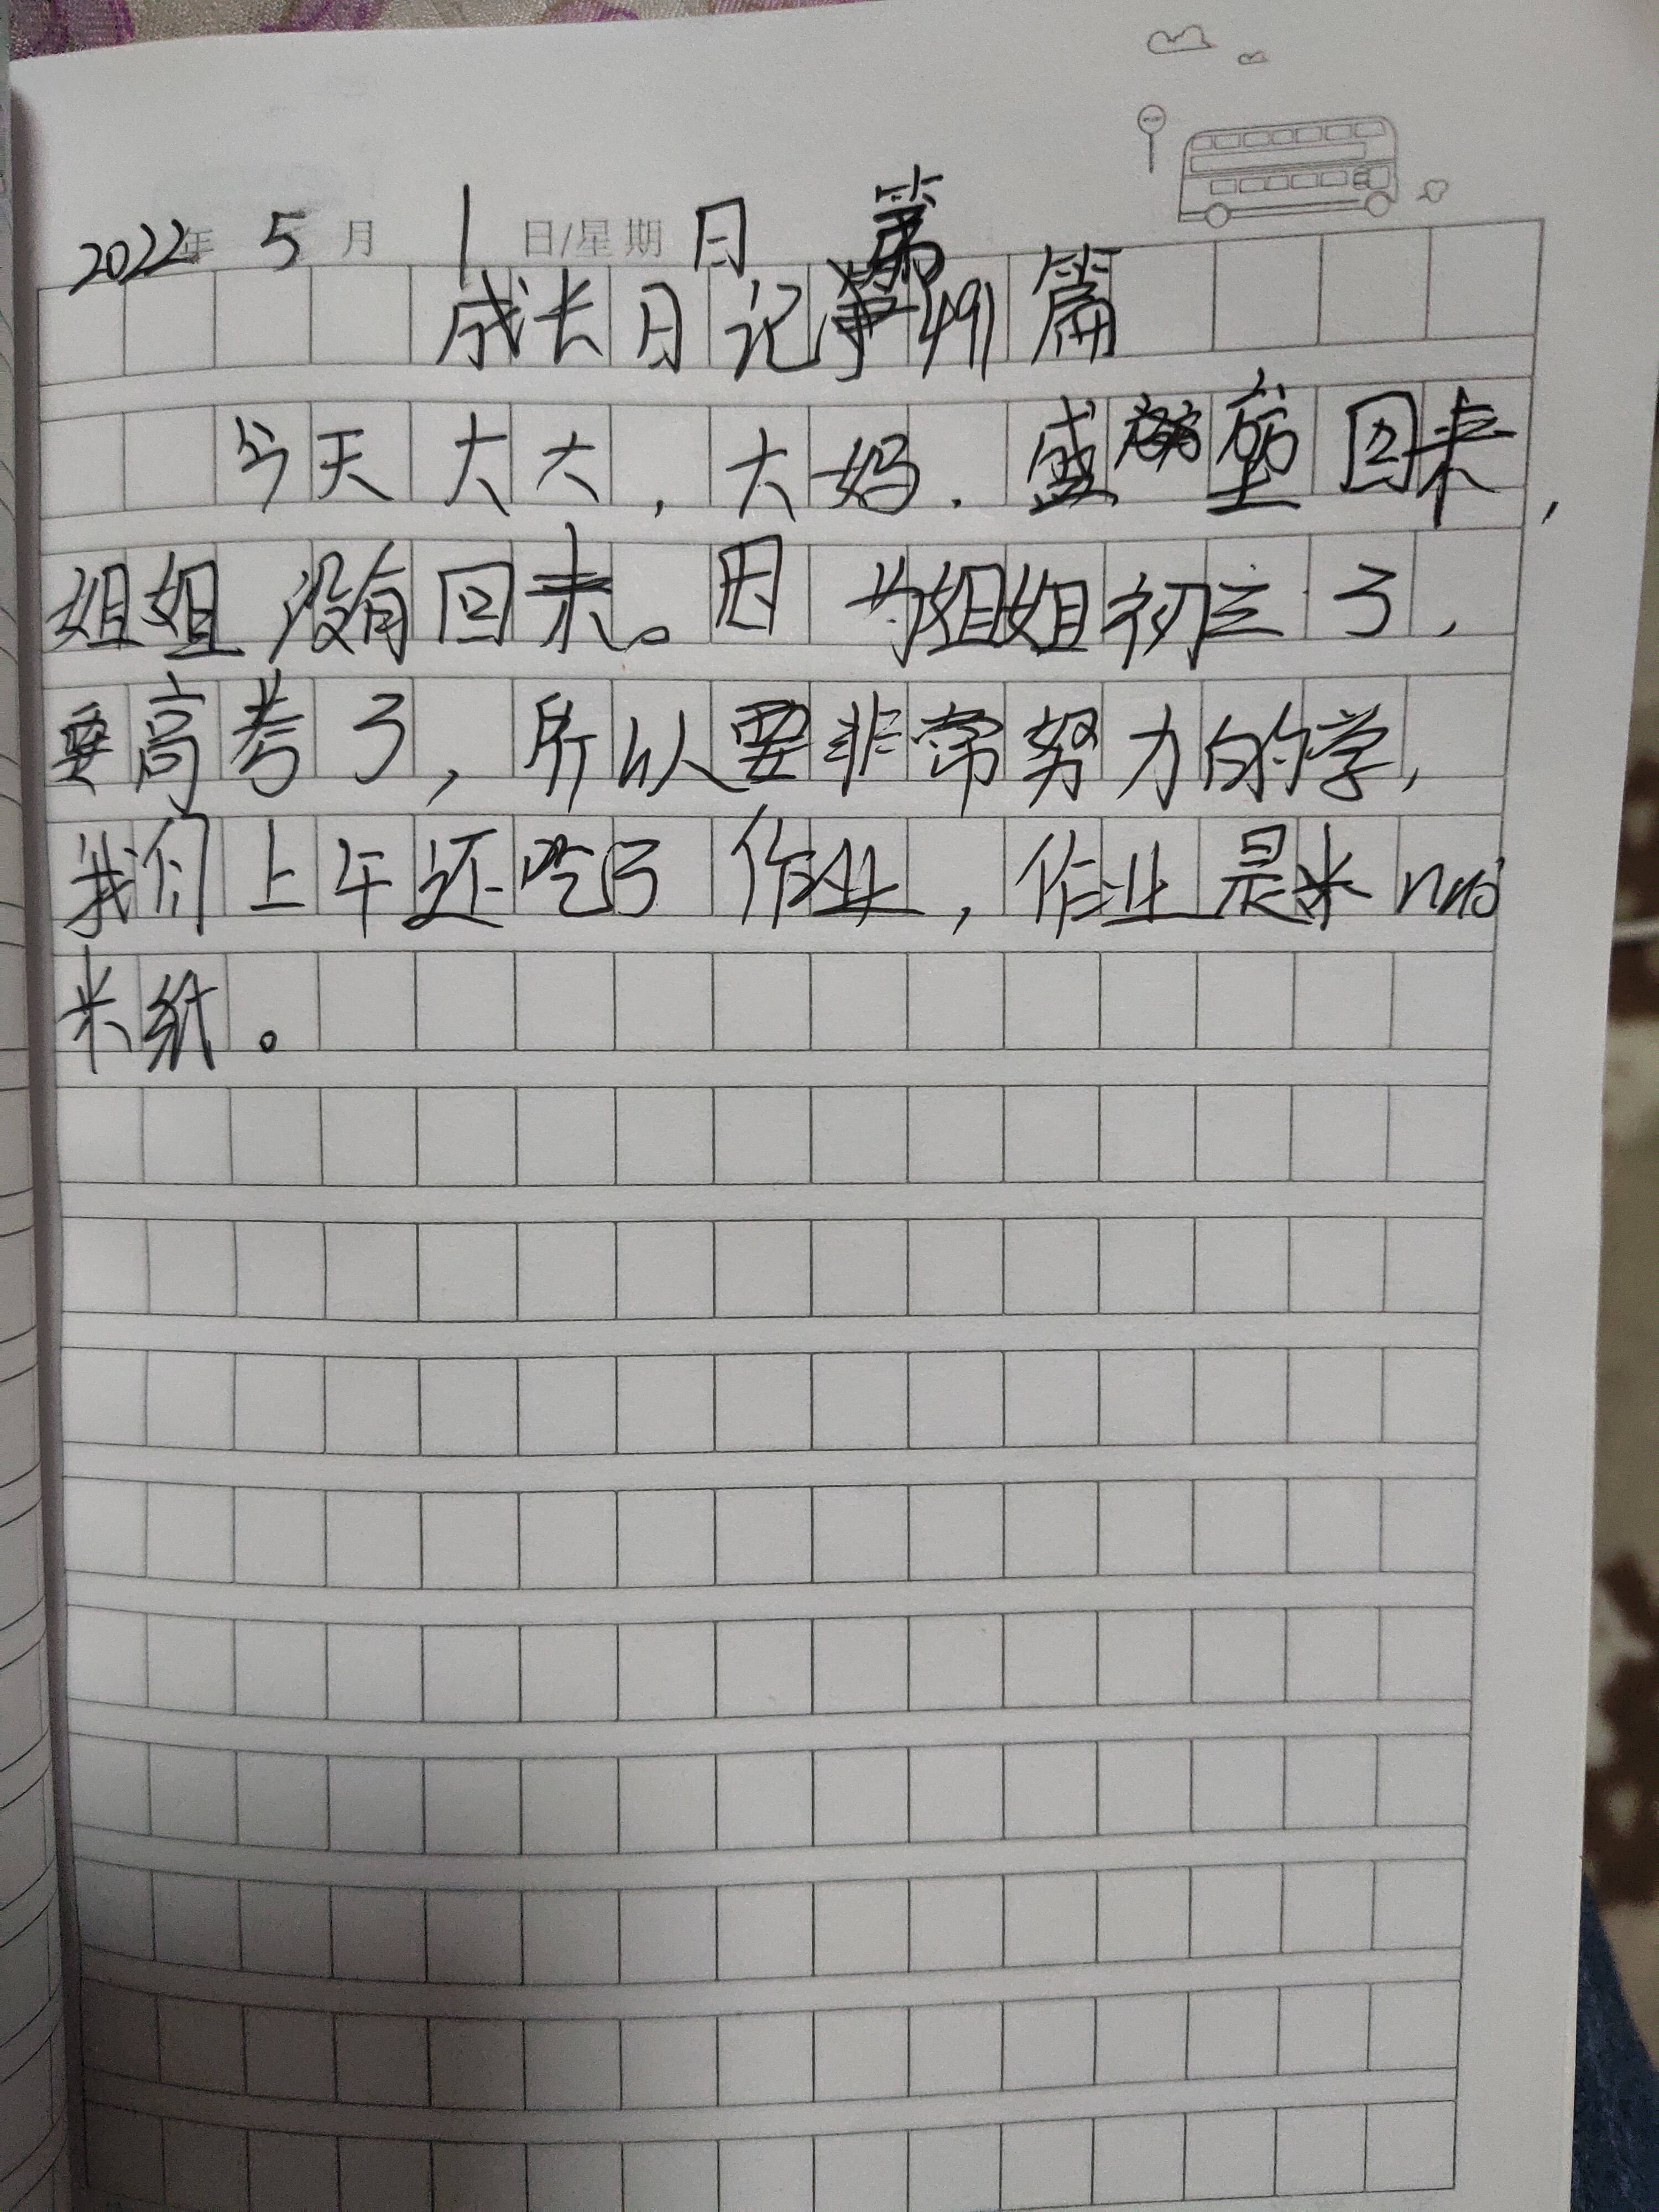 2022年 5月 1日/星期日 第
成长日记 491篇
今天大大,大妈.盛 塱回来,
姐姐没有回来。因为姐姐初三了,
要高考了,所以要非常努力的学,
我们上午还吃了作业,作业是米nuò
米纸。